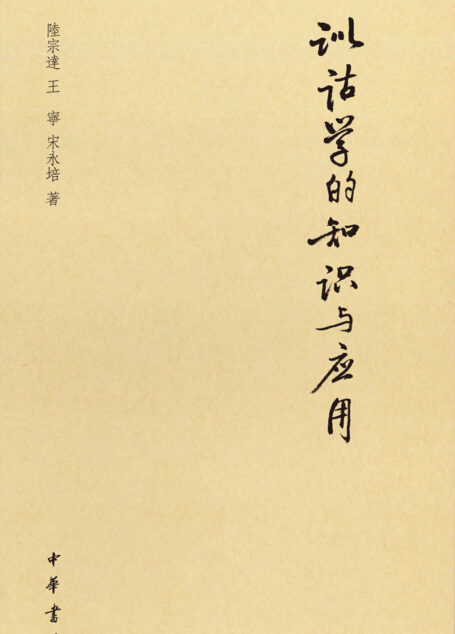 训诂学的知识与应用
陸宗達 王 寧 宋永培 著
中華書